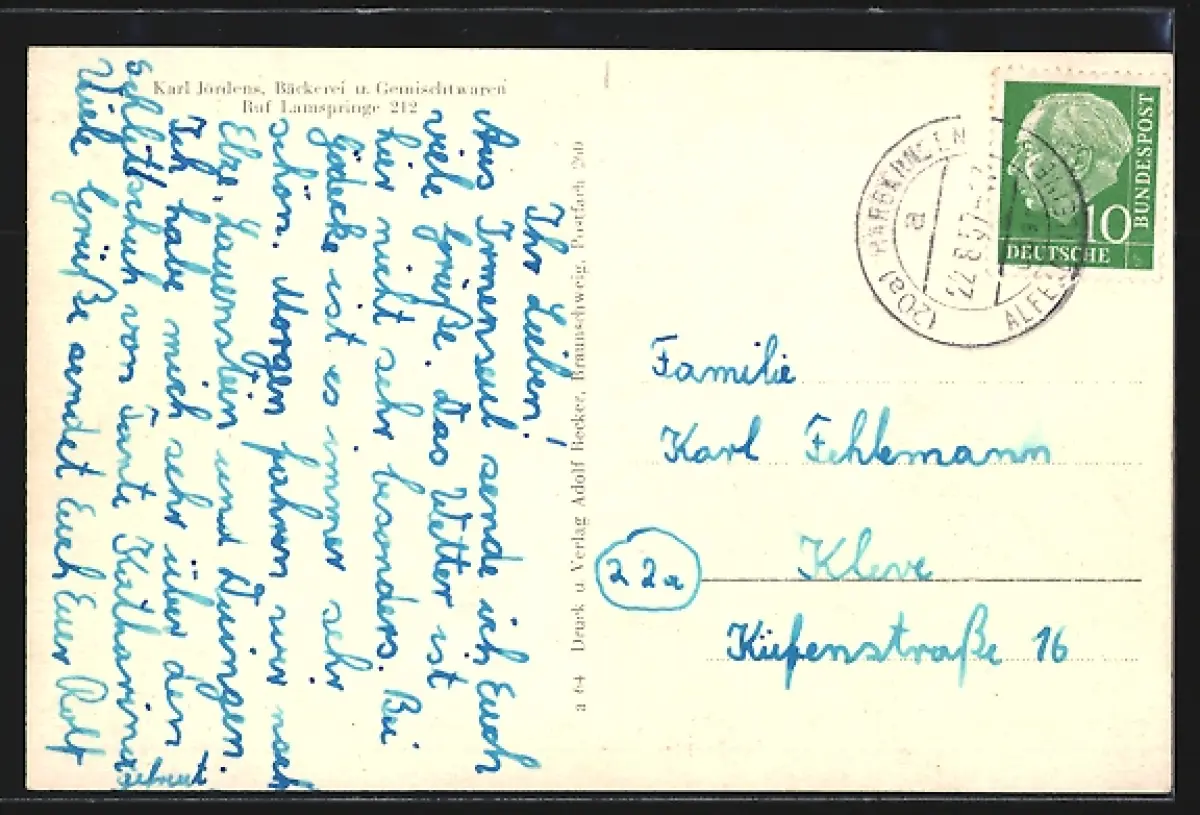 Karl Jördens, Bäckerei u. Gemischtwaren
Ruf Lamspringe 212
Ihr Lieben!
Aus Irmenseul sende ich Euch
viele Grüße. Das Wetter ist
hier nicht sehr besonders. Bei
Gödecke ist es immer sehr
schön. Morgen fahren wir nach
Elze, Lauenstein und Duingen.
Ich habe mich sehr über den
Schlittschuh von Tante Katharina
gefreut
Viele Grüße sendet Euch Euer Rolf
a 64 Druck u. Verlag Adolf Becker, Braunschweig, Postfach 260
DEUTSCHE
BUNDESPOST
10
(20a) HARBARNSEN
a
ALFELD
Familie
Karl Fehlemann
22a
Kleve
Küfenstraße 16